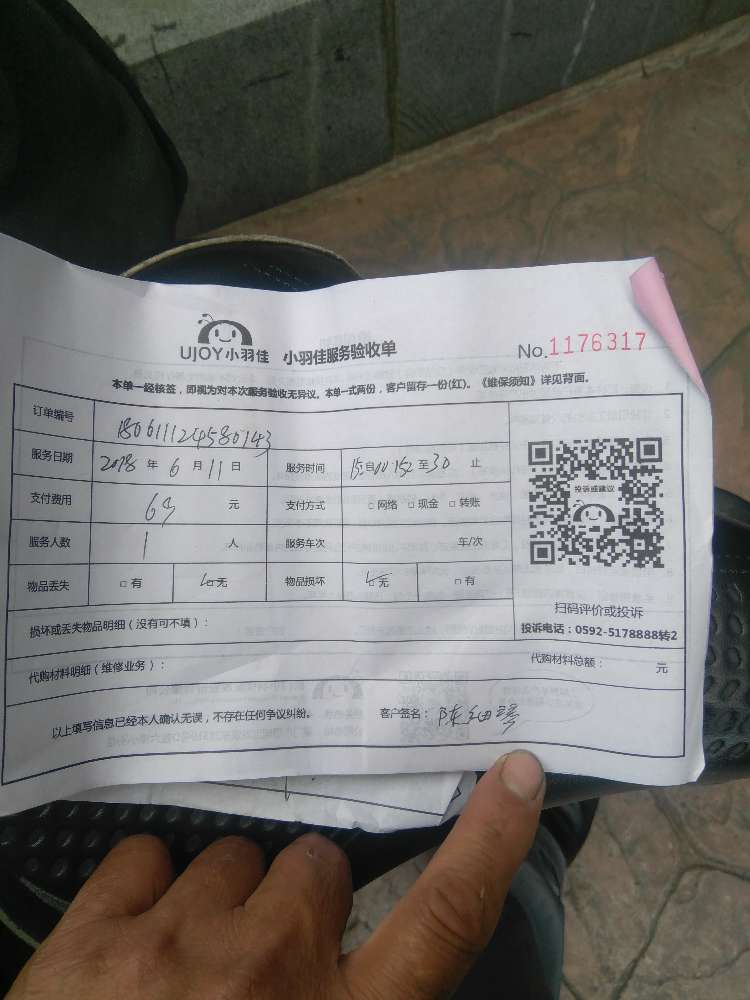 UJOY小羽佳 小羽佳服务验收单 No.1176317
本单一经核签，即视为对本次服务验收无异议。本单一式两份，客户留存一份(红)。《维保须知》详见背面。
订单编号 180611124580143
服务日期 2018 年 6 月 11 日 服务时间 自 至 30 止
支付费用 元 支付方式 □网络 □现金 □转账
服务人数 1 人 服务车次 车/次
物品丢失 □有 □无 物品损坏 □无 □有
投诉或建议
扫码评价或投诉
投诉电话：0592-5178888转2
损坏或丢失物品明细（没有可不填）：
代购材料明细（维修业务）： 代购材料总额： 元
以上填写信息已经本人确认无误，不存在任何争议纠纷。 客户签名：陈